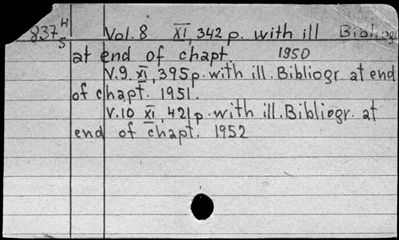 837 H
5
Vol. 8 XI, 342 p. with ill Bibliogr
at end of chapt 1950
V.9. XI, 395p. with ill. Bibliogr. at end
of chapt. 1951.
V.10 XI, 421p. with ill. Bibliogr. at
end of chapt. 1952